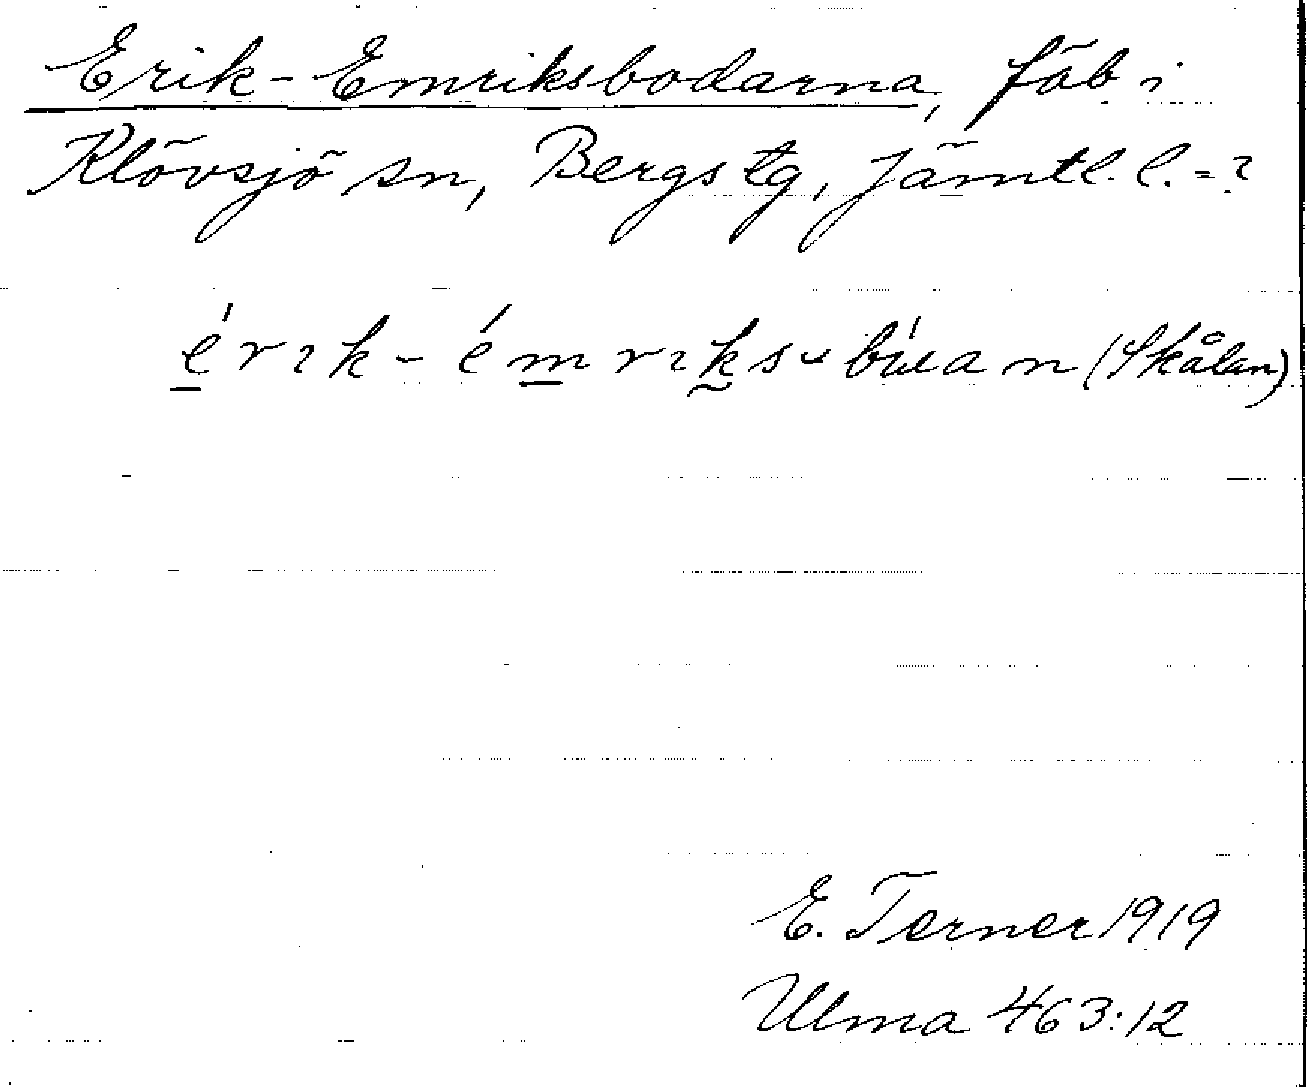 Erik-Emriksbodarna, fäb i
Klövsjö sn, Bergs tg, Jämtl. l. - ?
érık-émrıks⌣búan (Skålan)
E. Terner 1919
Ulma 463:12